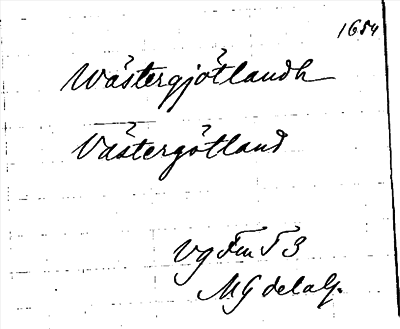 1684
Wästergjötlandh
Västergötland
Vg Fm T 3
MG delalf.